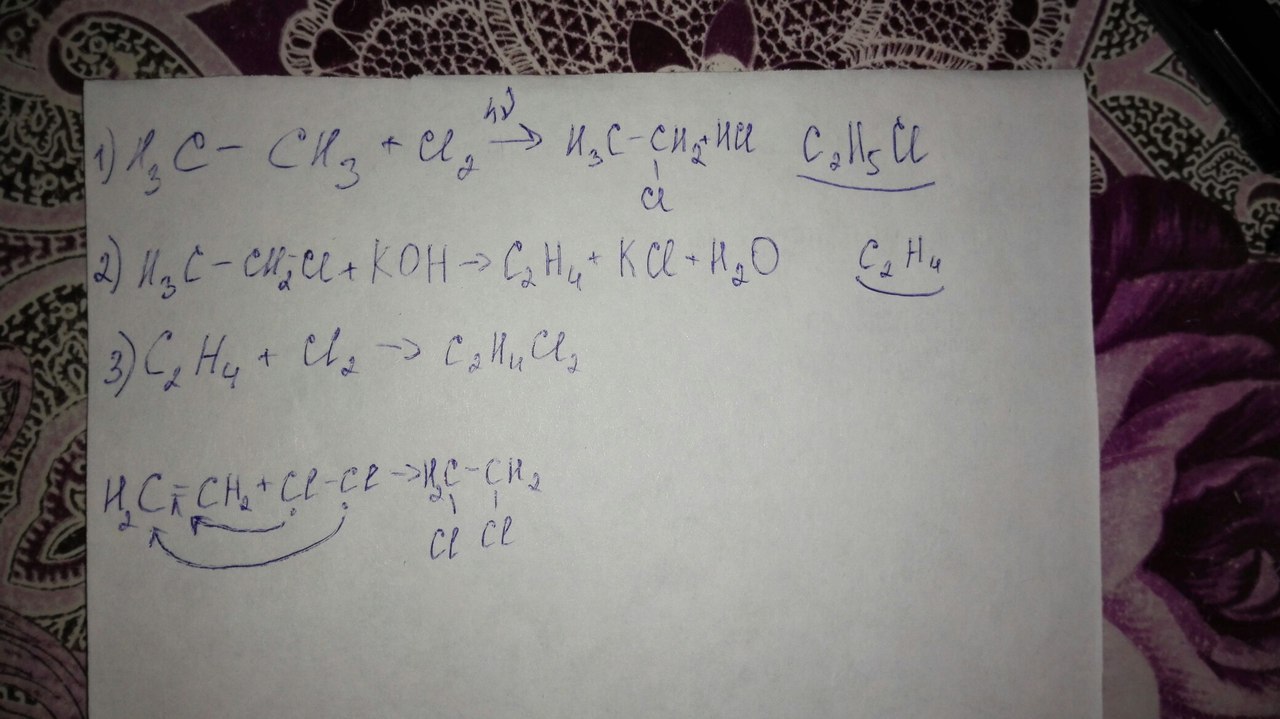 hν
1) H₃C – CH₃ + Cl₂ → H₃C – CH₂ + HCl C₂H₅Cl
Cl
2) H₃C – CH₂–Cl + KOH → C₂H₄ + KCl + H₂O C₂H₄
3) C₂H₄ + Cl₂ → C₂H₄Cl₂
H₂C = CH₂ + Cl – Cl → H₂C – CH₂
Cl Cl